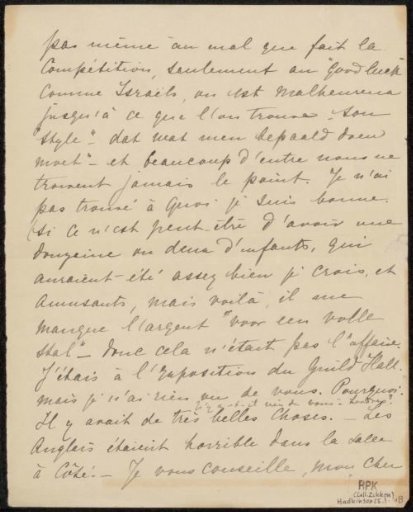 pas même au mal que fait la
Compétition, seulement au "Good luck"
Comme Israels, on est malheureux
jusqu'à ce que l'on trouve son
"style" - dat wat men bepaald doen
moet" - et beaucoup d'entre nous ne
trouvent jamais le point. Je n'ai
pas trouvé à quoi je suis bonne
(si ce n'est peut-être d'avoir une
douzaine ou deux d'enfants, qui
auraient été assez bien je crois, et
Amusants, mais voilà, il me
manque l'argent "voor een volle
stal" - donc cela n'était pas l'affaire.
J'étais à l'Exposition du Guild Hall.
mais je n'ai rien vu de vous. Pourquoi
de vous - Londres?
Il y avait de très belles choses. Les
Anglais étaient horrible dans la Salle
à Côté. - Je vous conseille, mon Cher
RPK
(Coll. Zilcken)